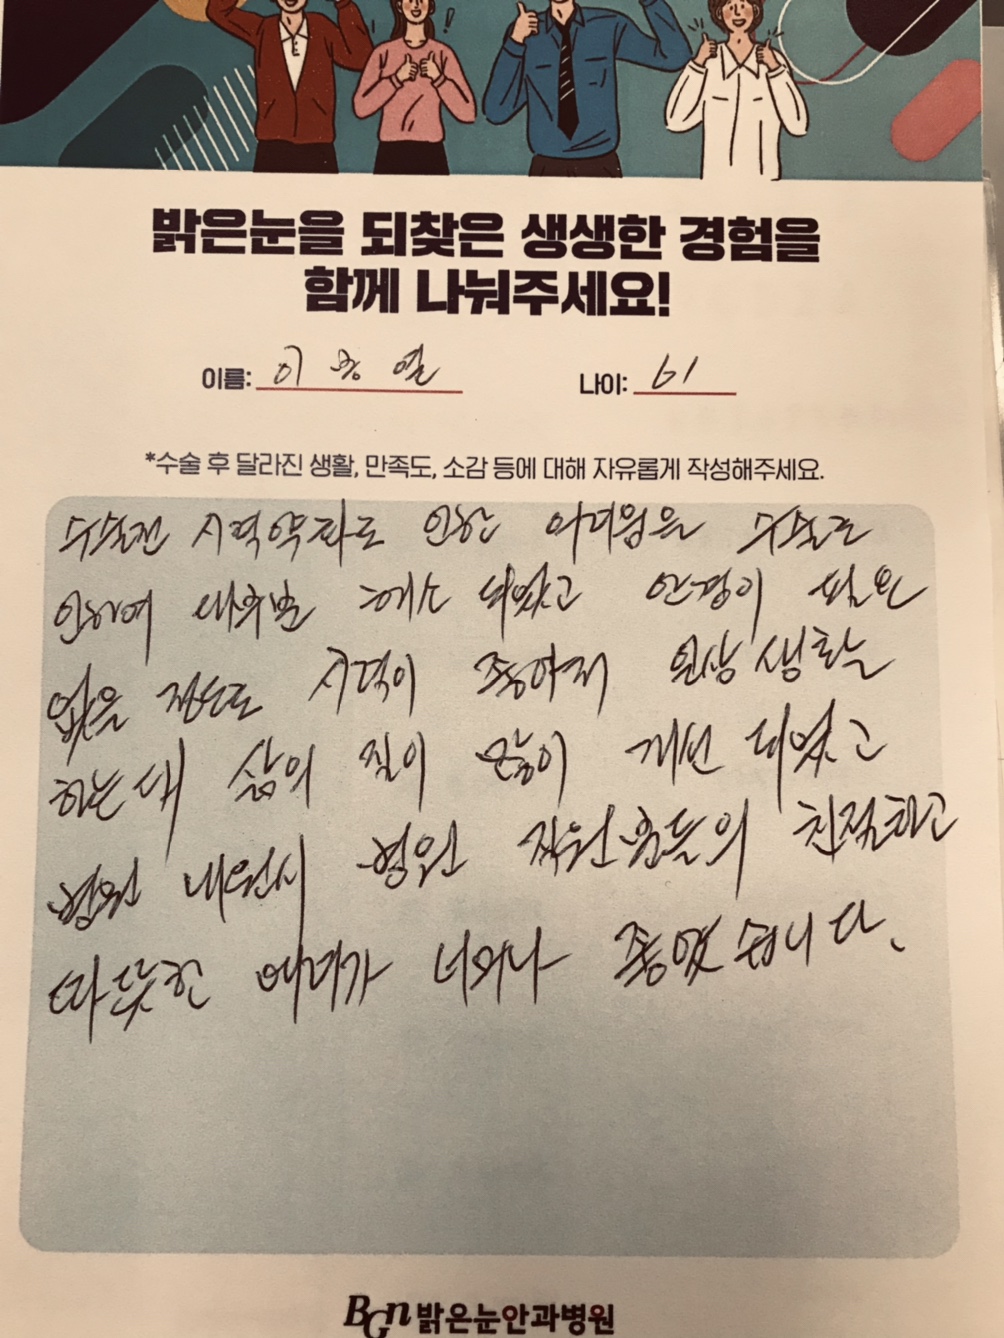 밝은눈을 되찾은 생생한 경험을
함께 나눠주세요!
이름: 이종열 나이: 61
*수술 후 달라진 생활, 만족도, 소감 등에 대해 자유롭게 작성해주세요.
수술전 시력약화로 인한 어려움을 수술로
인하여 대부분 해소 되었고 안경이 필요
없을 정도로 시력이 좋아져 일상생활
하는데 삶의 질이 많이 개선 되었고
병원 내원시 병원 직원분들의 친절하고
따뜻한 배려가 너무나 좋았습니다.
BGN 밝은눈안과병원